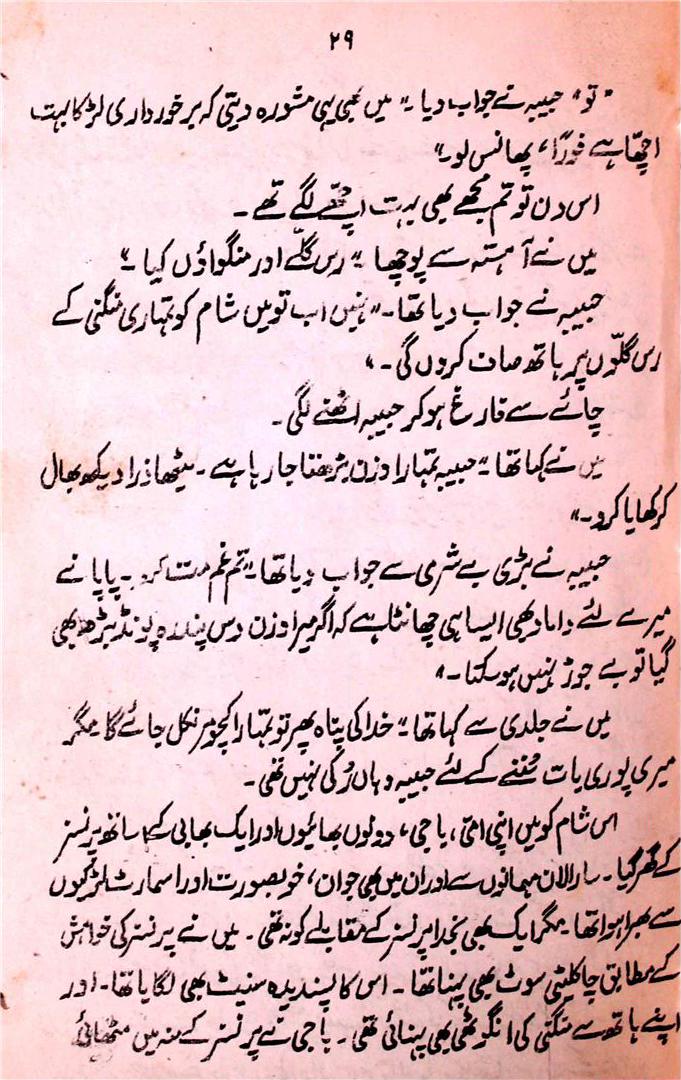 ۲۹
"تو" حبیبہ نے جواب دیا۔" میں بھی یہی مشورہ دیتی کہ برخورداری لڑکا بہت
اچھا ہے فوراً، پھانس لو۔"
اس دن تو تم مجھے بھی بہت اچھے لگے تھے۔
میں نے آہستہ سے پوچھا۔" رس گلے اور منگواؤں کیا۔"
حبیبہ نے جواب دیا تھا۔" نہیں اب تو میں شام کو تمہاری منگنی کے
رس گلّوں پر ہاتھ صاف کروں گی۔"
چائے سے فارغ ہو کر حبیبہ اٹھنے لگی۔
میں نے کہا تھا۔" حبیبہ تمہارا وزن بڑھتا جا رہا ہے۔ میٹھا ذرا دیکھ بھال
کر کھایا کرو۔"
حبیبہ نے بڑی بے شرمی سے جواب دیا تھا۔" تم غم مت کرو۔ پاپا نے
میرے لئے داماد بھی ایسا ہی چھانٹا ہے کہ اگر میرا وزن دس پندرہ پونڈ بڑھ بھی
گیا تو بے جوڑ نہیں ہو سکتا۔"
میں نے جلدی سے کہا تھا۔" خدا کی پناہ پھر تو تمہارا کچومر نکل جائے گا مگر
میری پوری بات سُننے کے لئے حبیبہ وہاں رُکی نہیں تھی۔
اس شام کو میں اپنی امی، باجی، دونوں بھائیوں اور ایک بھابی کے ساتھ پرنسز
کے گھر گیا۔ سارا لان مہمانوں سے اور ان میں بھی جوان، خوبصورت اور اسمارٹ لڑکیوں
سے بھرا ہوا تھا۔ مگر ایک بھی بخدا پرنسز کے مقابلے کو نہ تھی۔ میں نے پرنسز کی خواہش
کے مطابق چاکلیٹی سوٹ بھی پہنا تھا۔ اس کا پسندیدہ سنیٹ بھی لگایا تھا۔ اور
اپنے ہاتھ سے منگنی کی انگوٹھی بھی پہنائی تھی۔ باجی نے پرنسز کے منہ میں مٹھائی